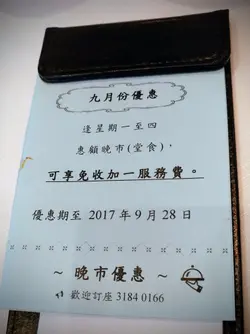 九月份優惠
逢星期一至四
惠顧晚市(堂食)，
可享免收加一服務費。
優惠期至 2017 年 9 月 28 日
~ 晚市優惠 ~
歡迎訂座 3184 0166